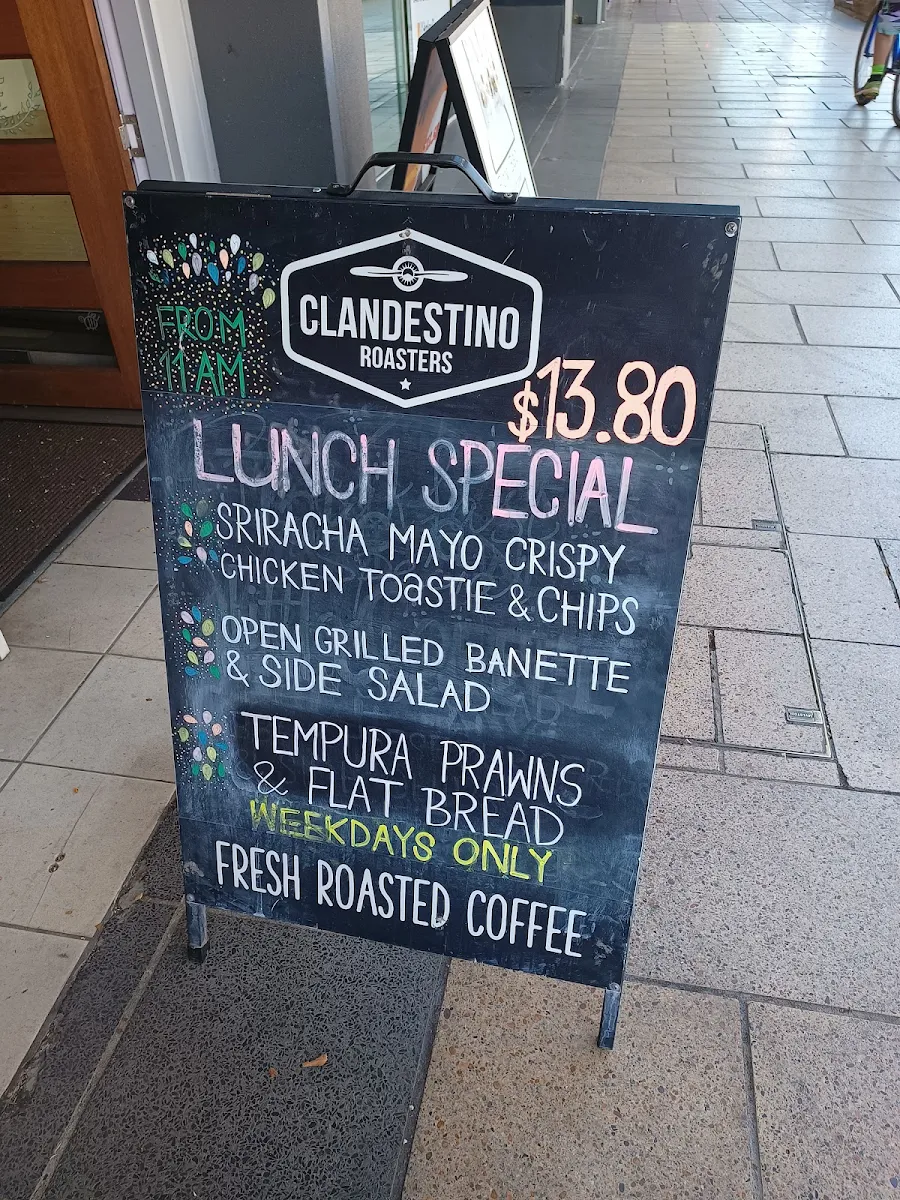 FROM
11 AM
CLANDESTINO
ROASTERS
$13.80
LUNCH SPECIAL
SRIRACHA MAYO CRISPY
CHICKEN TOaSTIE & CHIPS
OPEN GRILLED BANETTE
& SIDE SALAD
TEMPURA PRAWNS
& FLAT BREAD
WEEKDAYS ONLY
FRESH ROASTED COFFEE